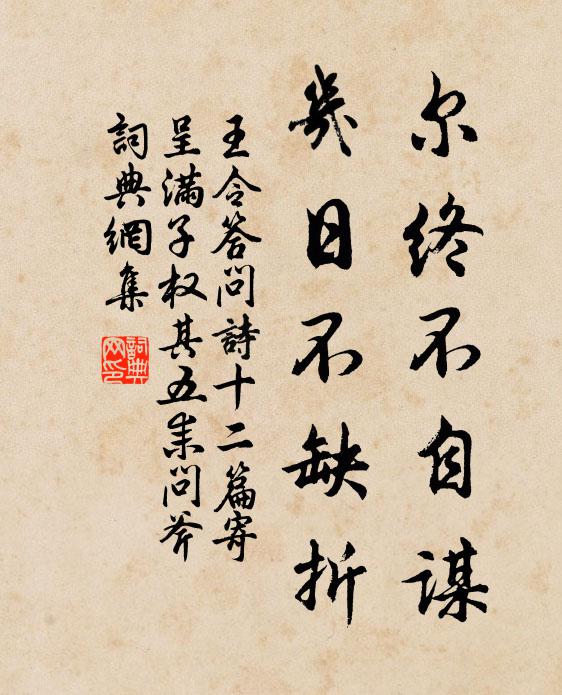 尔终不自谋
几日不缺折
王令答问詩十二篇寄
呈满子权其五耒问斧
詞典網集
詞典
网印